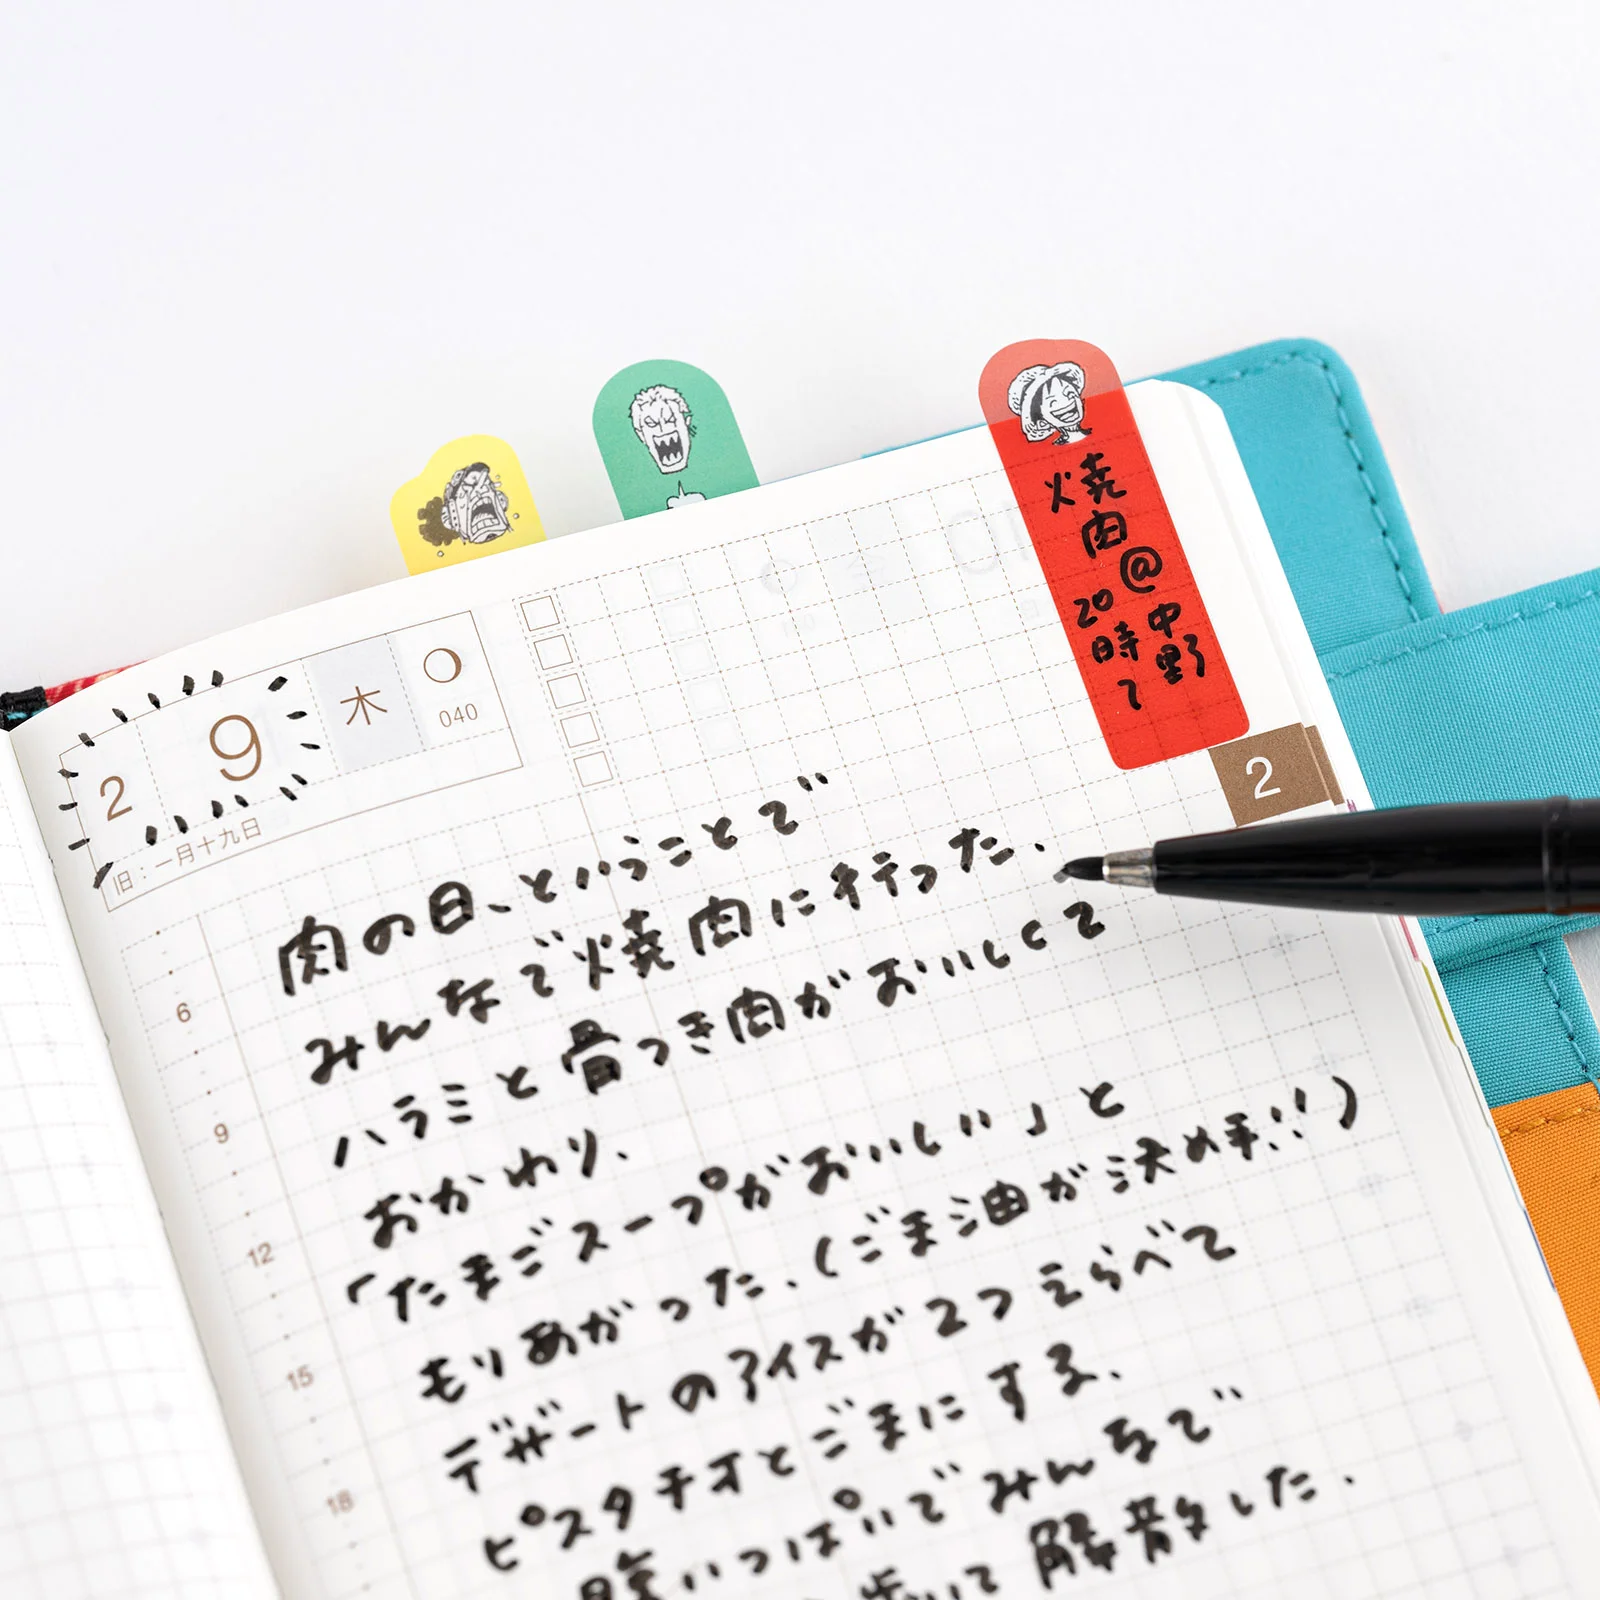 焼肉@中野
20時〜
2 9 木
040
旧：一月十九日
2
肉の日、ということで
みんなで焼肉に行った.
ハラミと骨つき肉がおいしくて
おかわり.
「たまごスープがおいしい」と
もりあがった.(ごま油が決め手!!)
デザートのアイスが2つえらべて
ピスタチオとごまにする.
腹いっぱいでみんなで
歩いて解散した.
6
9
12
15
18